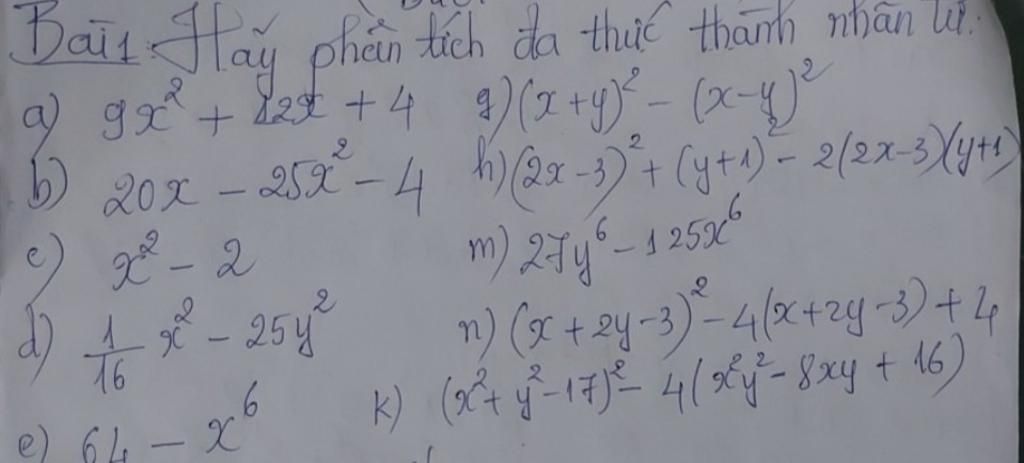 Bài 1: Hãy phân tích đa thức thành nhân tử.
a) 9x² + 12x + 4 g) (x+y)² - (x-y)²
b) 20x - 25x² - 4 h) (2x-3)² + (y+1)² - 2(2x-3)(y+1)
c) x² - 2 m) 27y⁶ - 125x⁶
d) 1/16 x² - 25y² n) (x+2y-3)² - 4(x+2y-3) + 4
e) 64 - x⁶ k) (x²+y²-17)² - 4(x²y² - 8xy + 16)